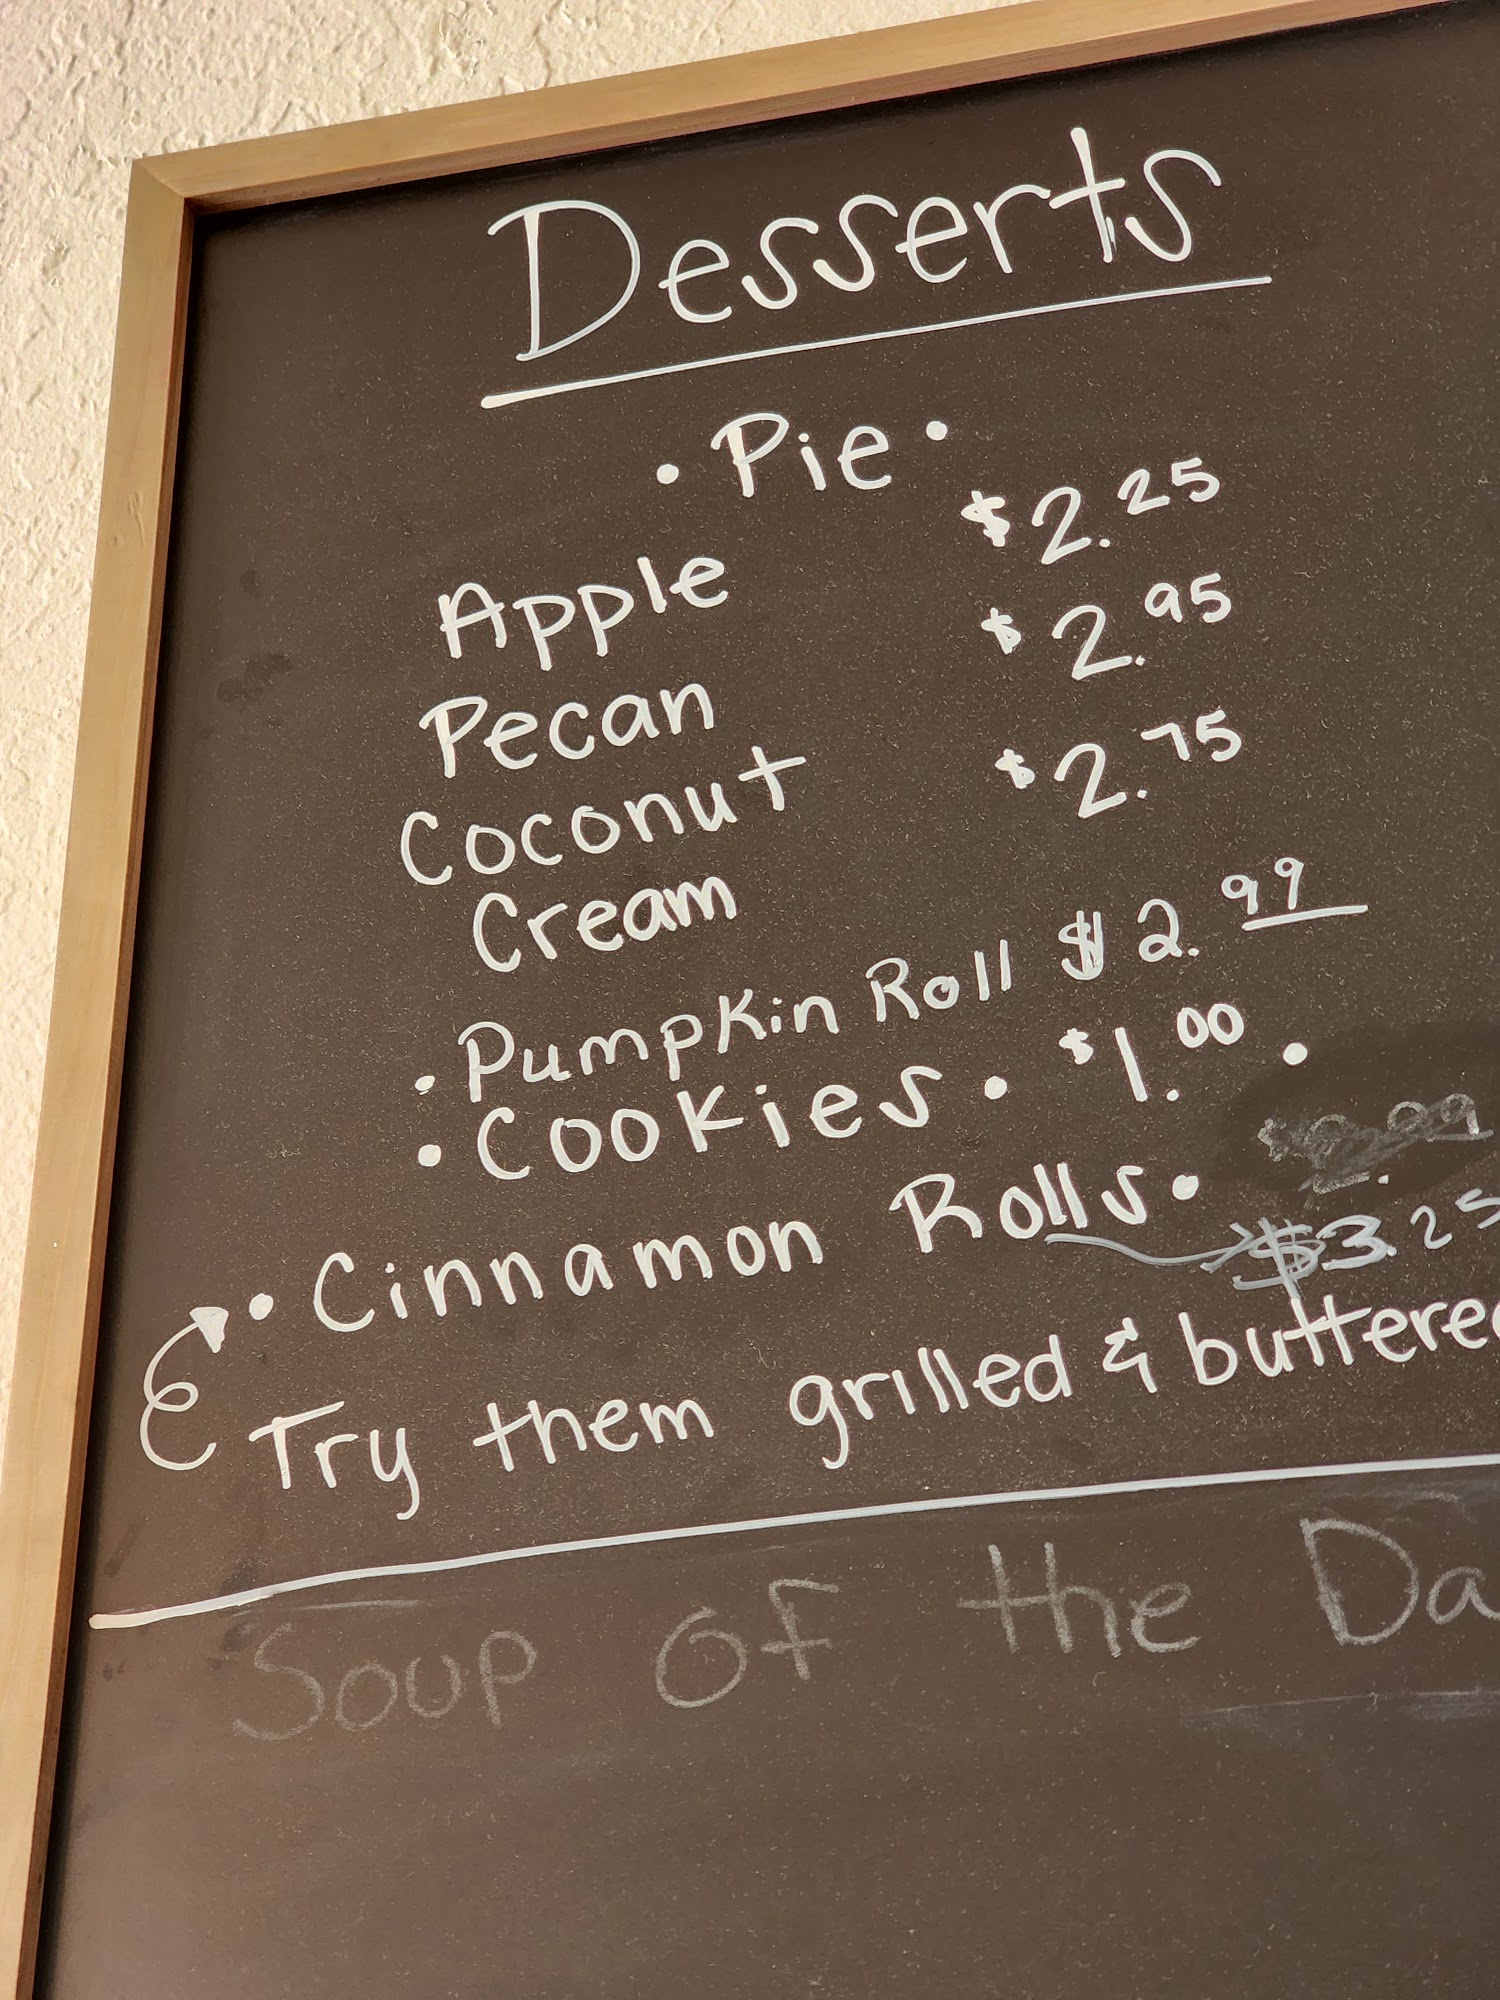 Desserts
• Pie •
Apple $2.25
Pecan $2.95
Coconut $2.75
Cream
• Pumpkin Roll $2.99
• Cookies • $1.00 •
• Cinnamon Rolls •
$3.25
Try them grilled & buttered
Soup of the Da